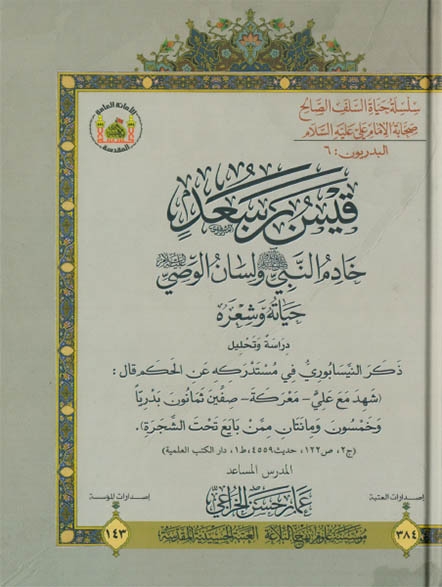 سلسلة حياة السلف الصالح
صحابة الإمام علي عليه السلام
البدريون: ٦
الأمانة العامة
المقدسة
قيس بن سعد
خادم النبي ولسان الوصي
حياته وشعره
دراسة وتحليل
ذكر النيسابوري في مستدركه عن الحكم قال:
(شهد مع علي - معركة - صفين ثمانون بدرياً
وخمسون ومائتان ممن بايع تحت الشجرة).
(ج٢، ص١٢٢، حديث ٤٥٥٩، ط١، دار الكتب العلمية)
المدرس المساعد
عمار حسن الخزاعي
إصدارات العتبة
٣٨٤
مؤسسة علوم نهج البلاغة العتبة الحسينية المقدسة
إصدارات المؤسسة
١٤٣